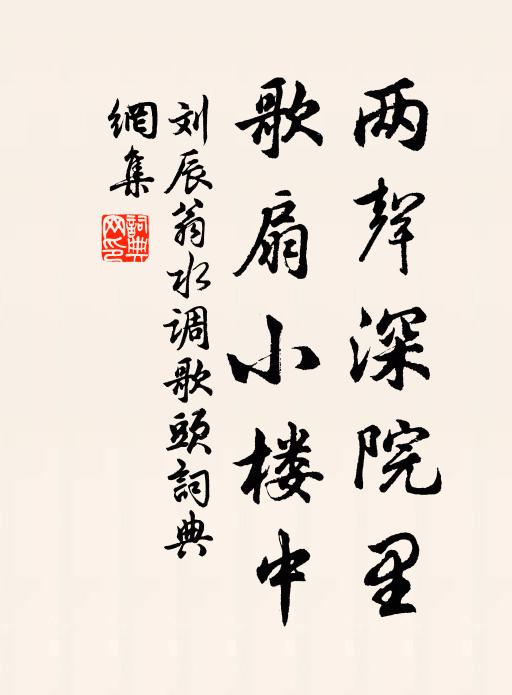 两聲深院里
歌扇小楼中
刘辰翁水调歌頭詞典
網集
詞典
网印